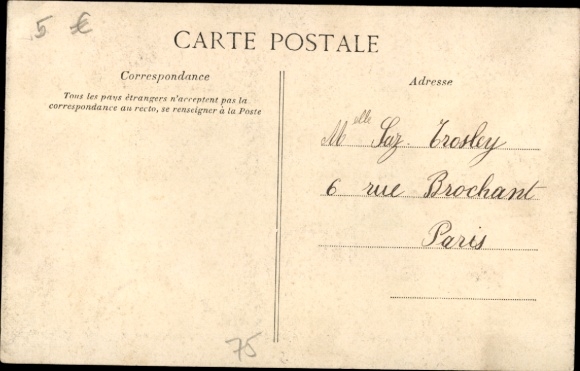 5 €
CARTE POSTALE
Correspondance
Tous les pays étrangers n'acceptent pas la
correspondance au recto, se renseigner à la Poste
Adresse
Melle Trosley
6 rue Brochant
Paris
75